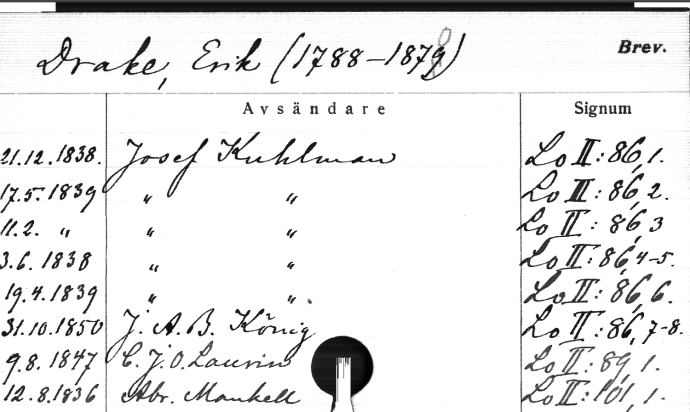 Drake, Erik (1788-1879) Brev.
Avsändare Signum
21.12.1838. Josef Kuhlman Lo II: 86, 1.
17.5.1839 " " Lo II: 86, 2.
11.2. " " " Lo II: 86, 3
3.6.1838 " " Lo II: 86, 4-5.
19.4.1839 " " Lo II: 86, 6.
31.10.1850 J. A. B. König Lo II: 86, 7-8.
9.8.1847 C. J. O. Laurin Lo II: 89, 1.
12.8.1836 Abr. Mankell Lo II: 101, 1.